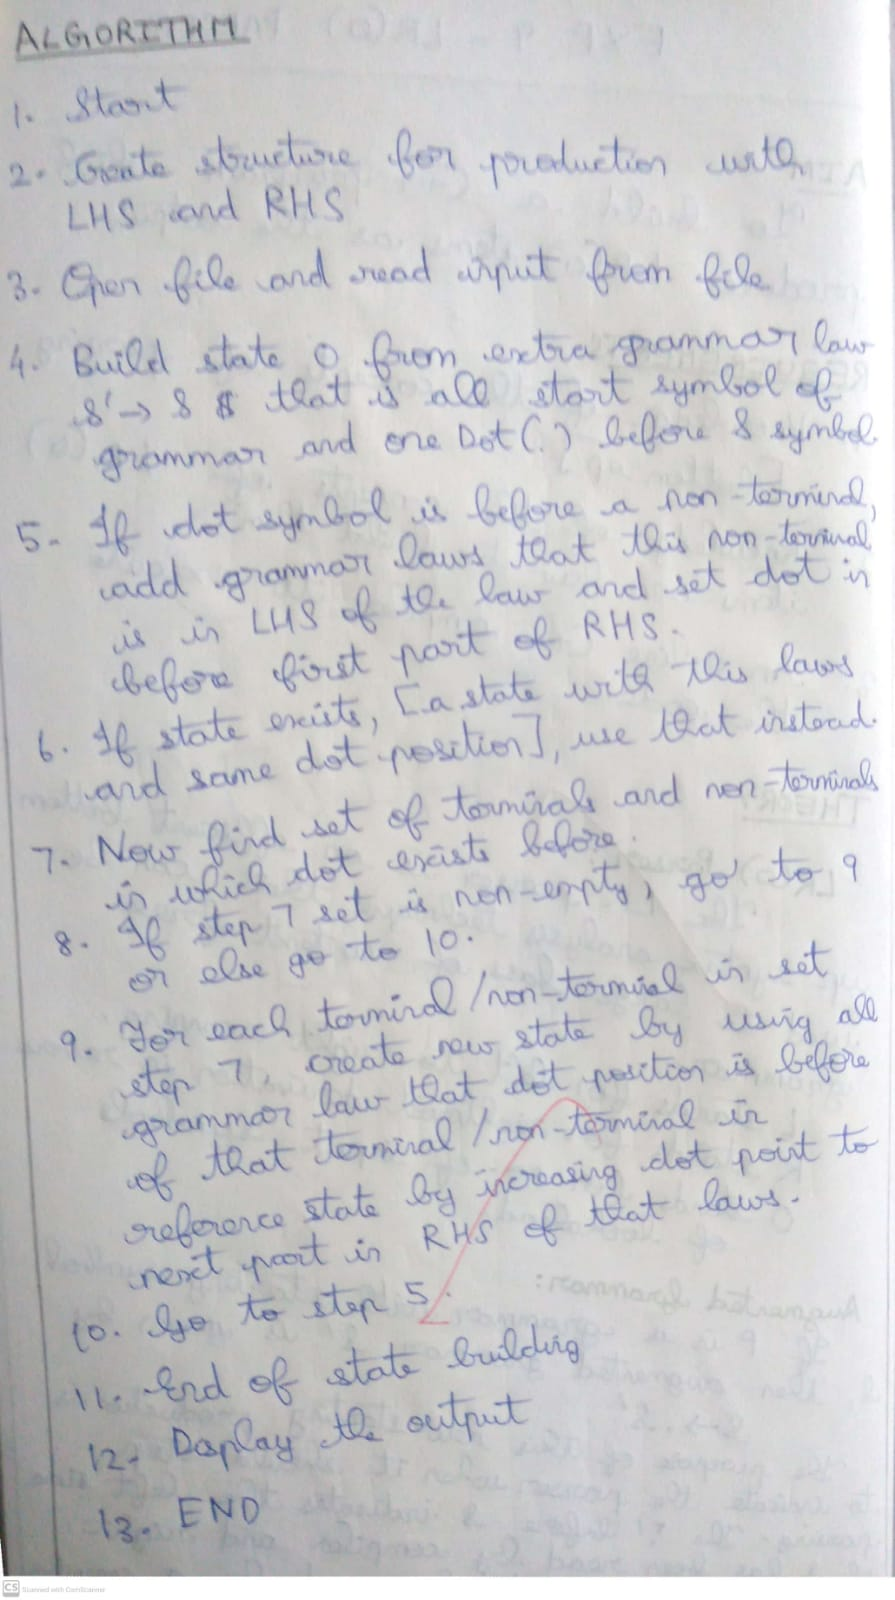 ALGORITHM
1. Start
2. Create structure for production with
LHS and RHS
3. Open file and read input from file
4. Build state 0 from extra grammar law
S' → S $ that is all start symbol of
grammar and one Dot (.) before S symbol.
5. If dot symbol is before a non-terminal,
add grammar laws that this non-terminal
is in LHS of the law and set dot in
before first part of RHS.
6. If state exists, [a state with this laws
and same dot position], use that instead.
7. Now find set of terminals and non-terminals
in which dot exists before.
8. If step 7 set is non-empty, go to 9
or else go to 10.
9. For each terminal/non-terminal in set
step 7, create new state by using all
grammar law that dot position is before
of that terminal/non-terminal in
reference state by increasing dot point to
next part in RHS of that laws.
10. Go to step 5.
11. End of state building
12. Display the output
13. END
CS Scanned with CamScanner